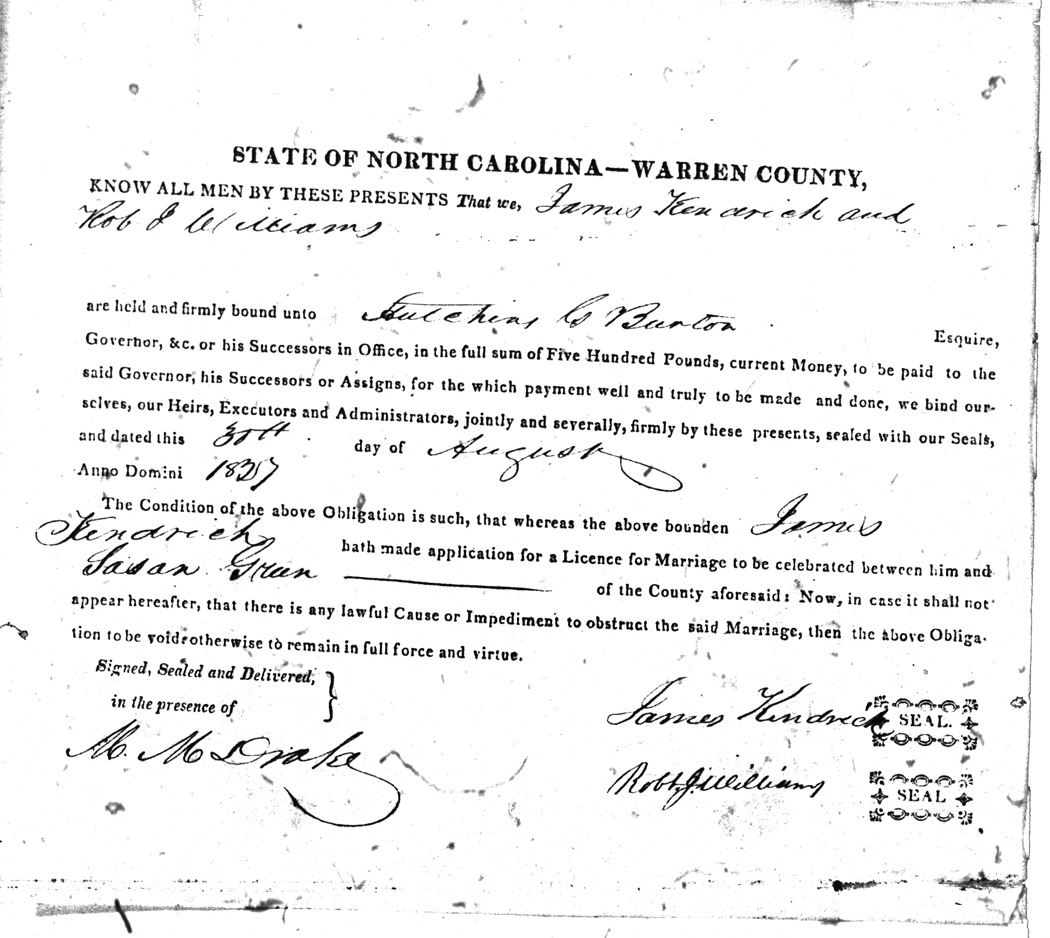 STATE OF NORTH CAROLINA—WARREN COUNTY,
KNOW ALL MEN BY THESE PRESENTS That we, James Kendrick and
Rob J Williams
are held and firmly bound unto Hutchins G Burton Esquire,
Governor, &c. or his Successors in Office, in the full sum of Five Hundred Pounds, current Money, to be paid to the
said Governor, his Successors or Assigns, for the which payment well and truly to be made and done, we bind our-
selves, our Heirs, Executors and Administrators, jointly and severally, firmly by these presents, sealed with our Seals,
and dated this 30th day of August
Anno Domini
The Condition of the above Obligation is such, that whereas the above bounden James
Kendrick hath made application for a Licence for Marriage to be celebrated between him and
Susan Green of the County aforesaid: Now, in case it shall not
appear hereafter, that there is any lawful Cause or Impediment to obstruct the said Marriage, then the above Obliga-
tion to be void: otherwise to remain in full force and virtue.
Signed, Sealed and Delivered,
in the presence of
M. M Drake
James Kendrick SEAL.
Robt J Williams SEAL